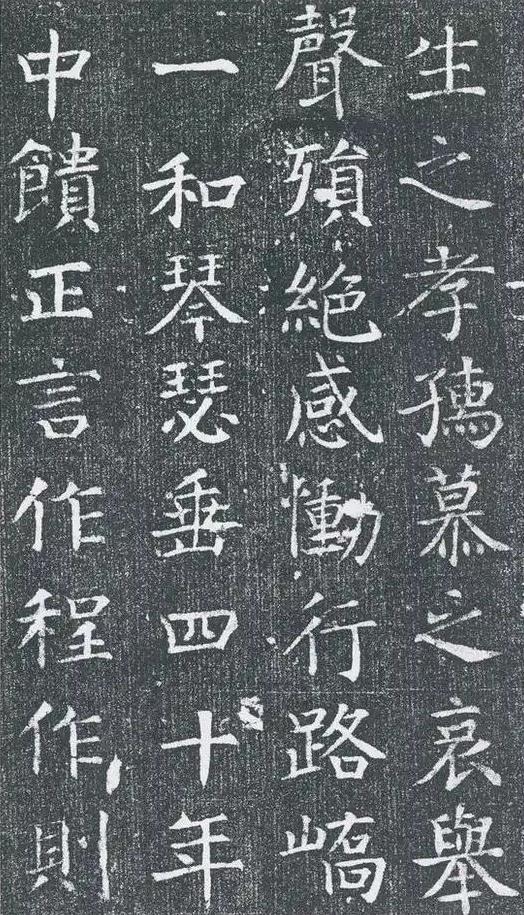 生之孝孺慕之哀舉
聲殞絶感慟行路嶠
一和琴瑟垂四十年
中饋正言作程作則